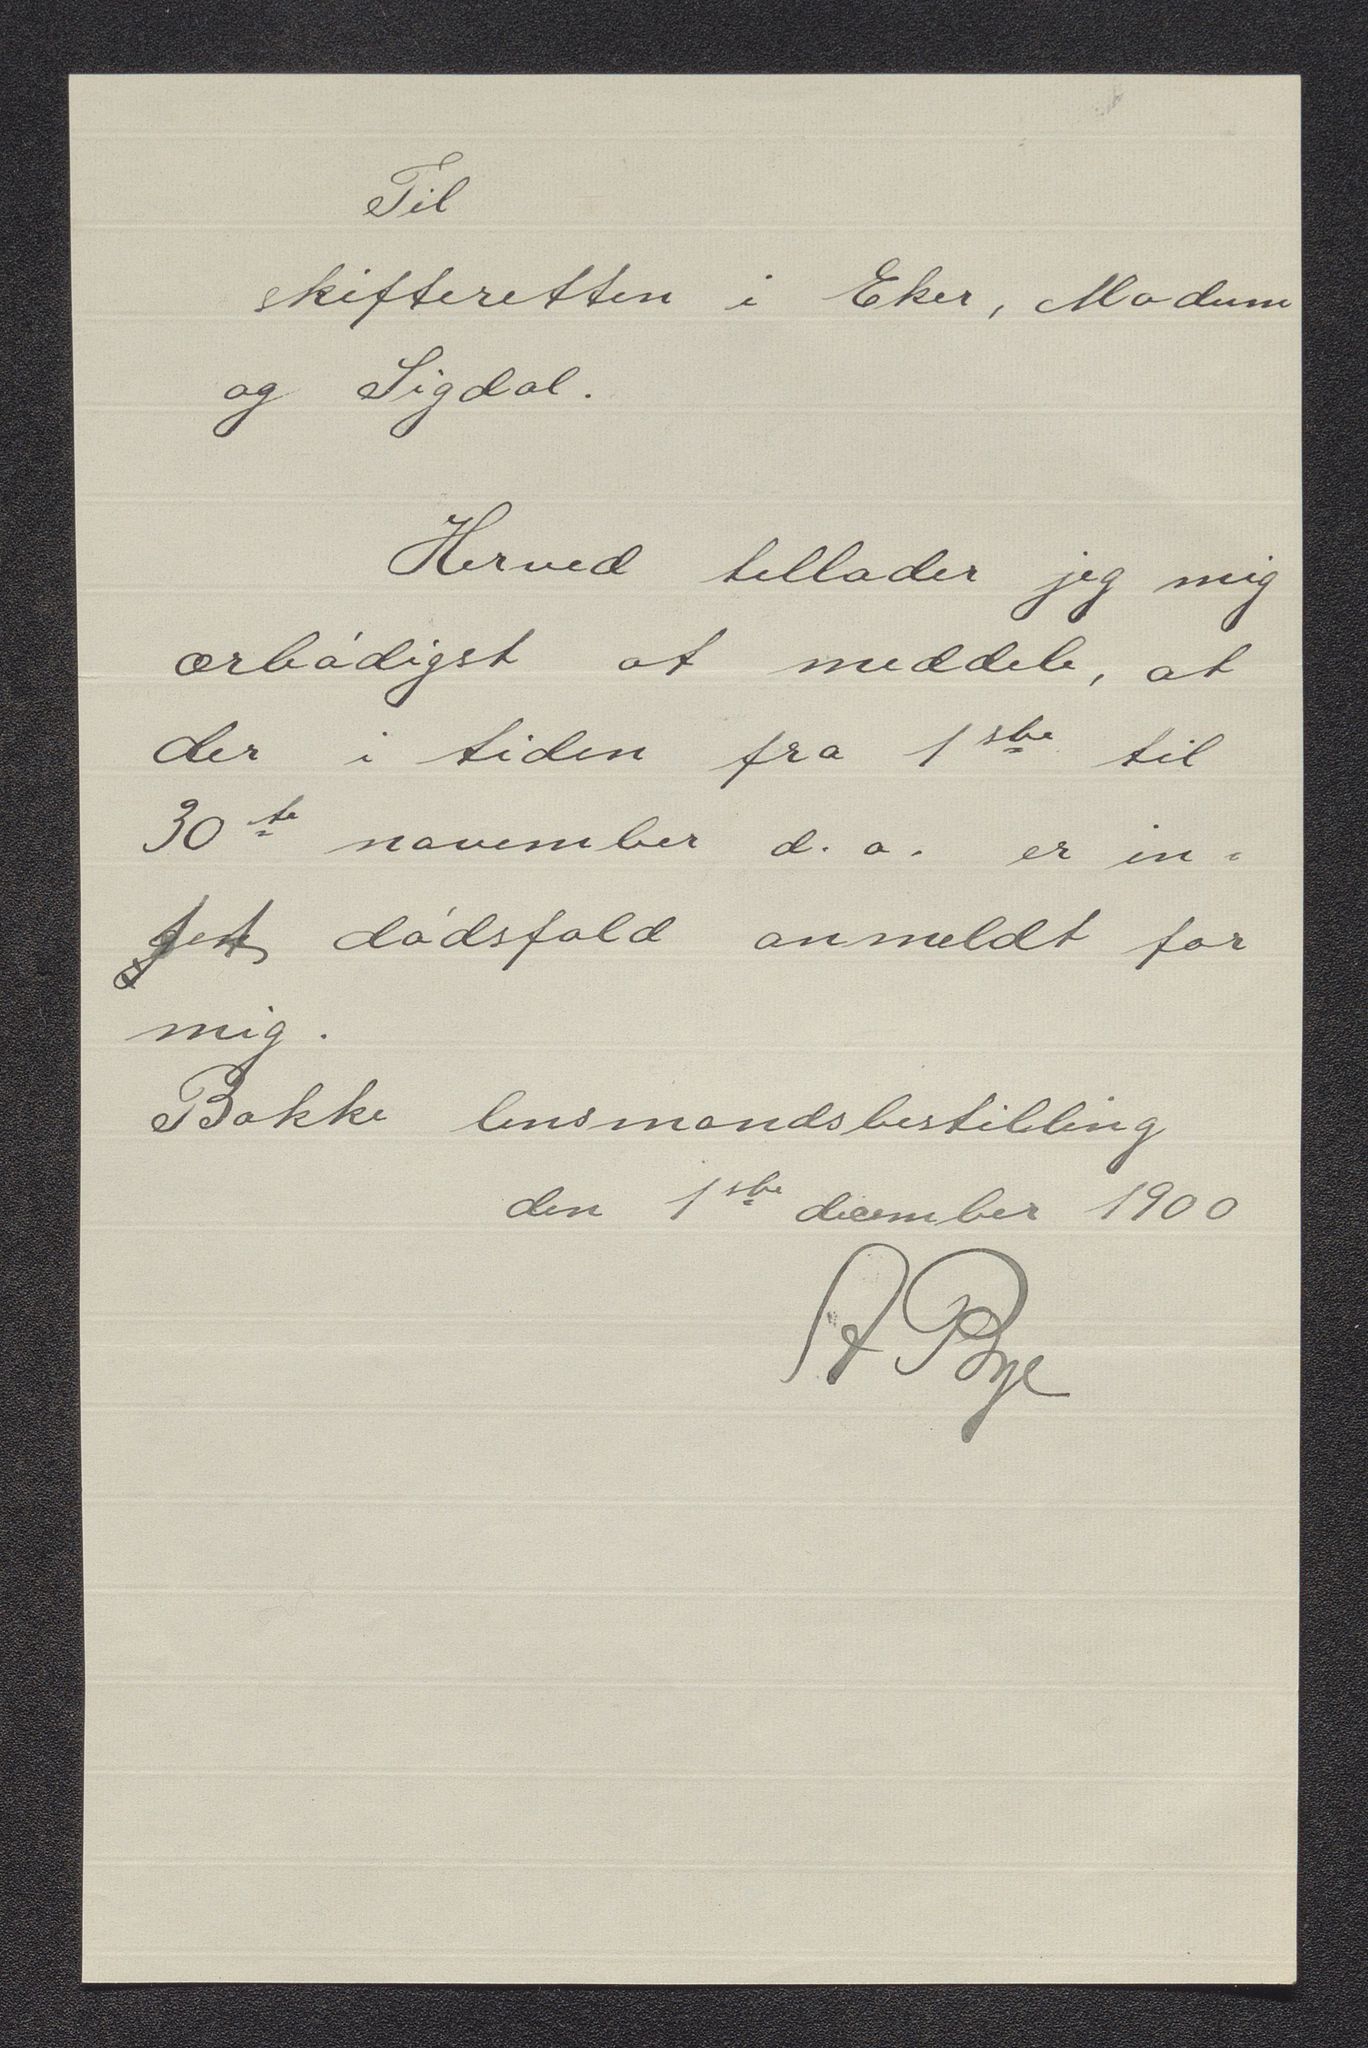 Til
skifteretten i Eker, Modum
og Sigdal.
Herved tillader jeg mig
ærbødigst at meddele, at
der i tiden fra 1ste til
30te november d. a. er in-
tet dødsfald anmeldt for
mig.
Bakke lensmandsbestilling
den 1ste december 1900
A Bye